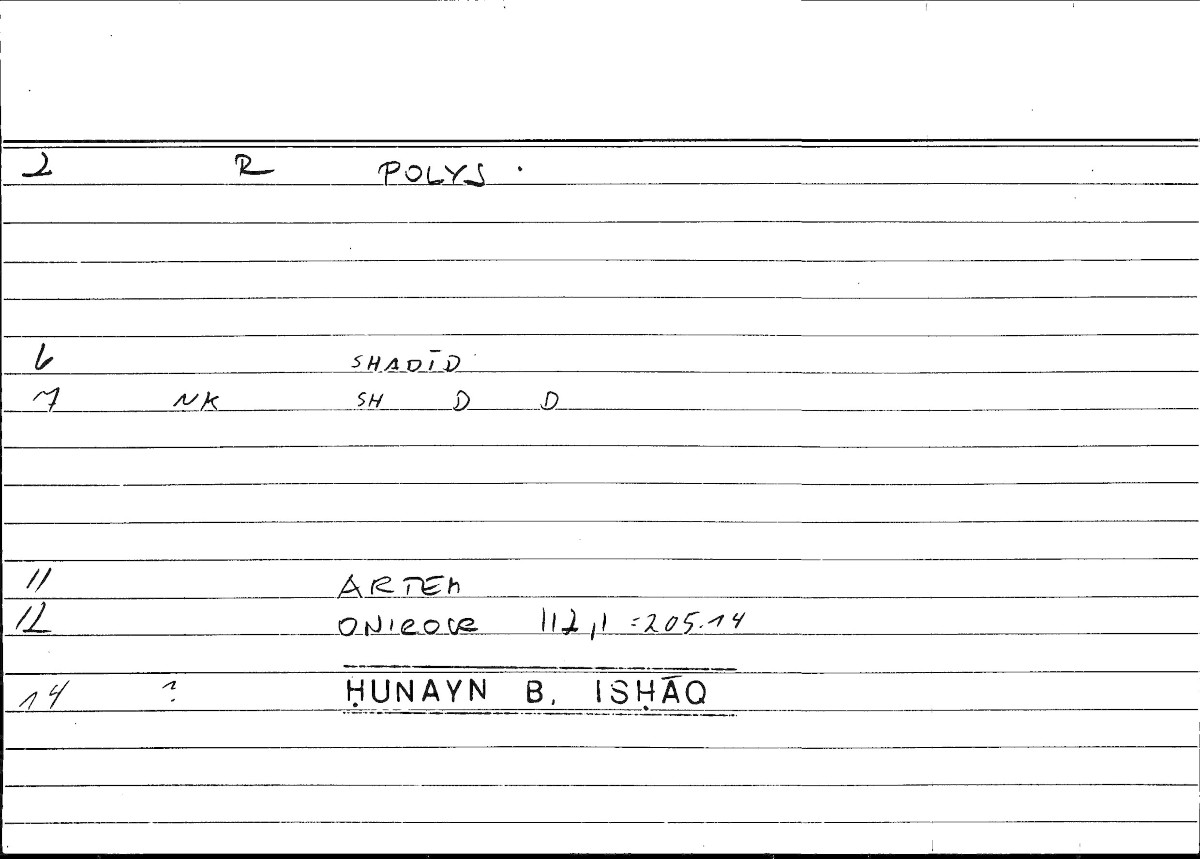 2 R POLYS.
6 SHADĪD
7 NK SH D D
11 ARTEM
12 ONIROCR 112,1 =205.14
14 ? ḤUNAYN B. ISḤĀQ